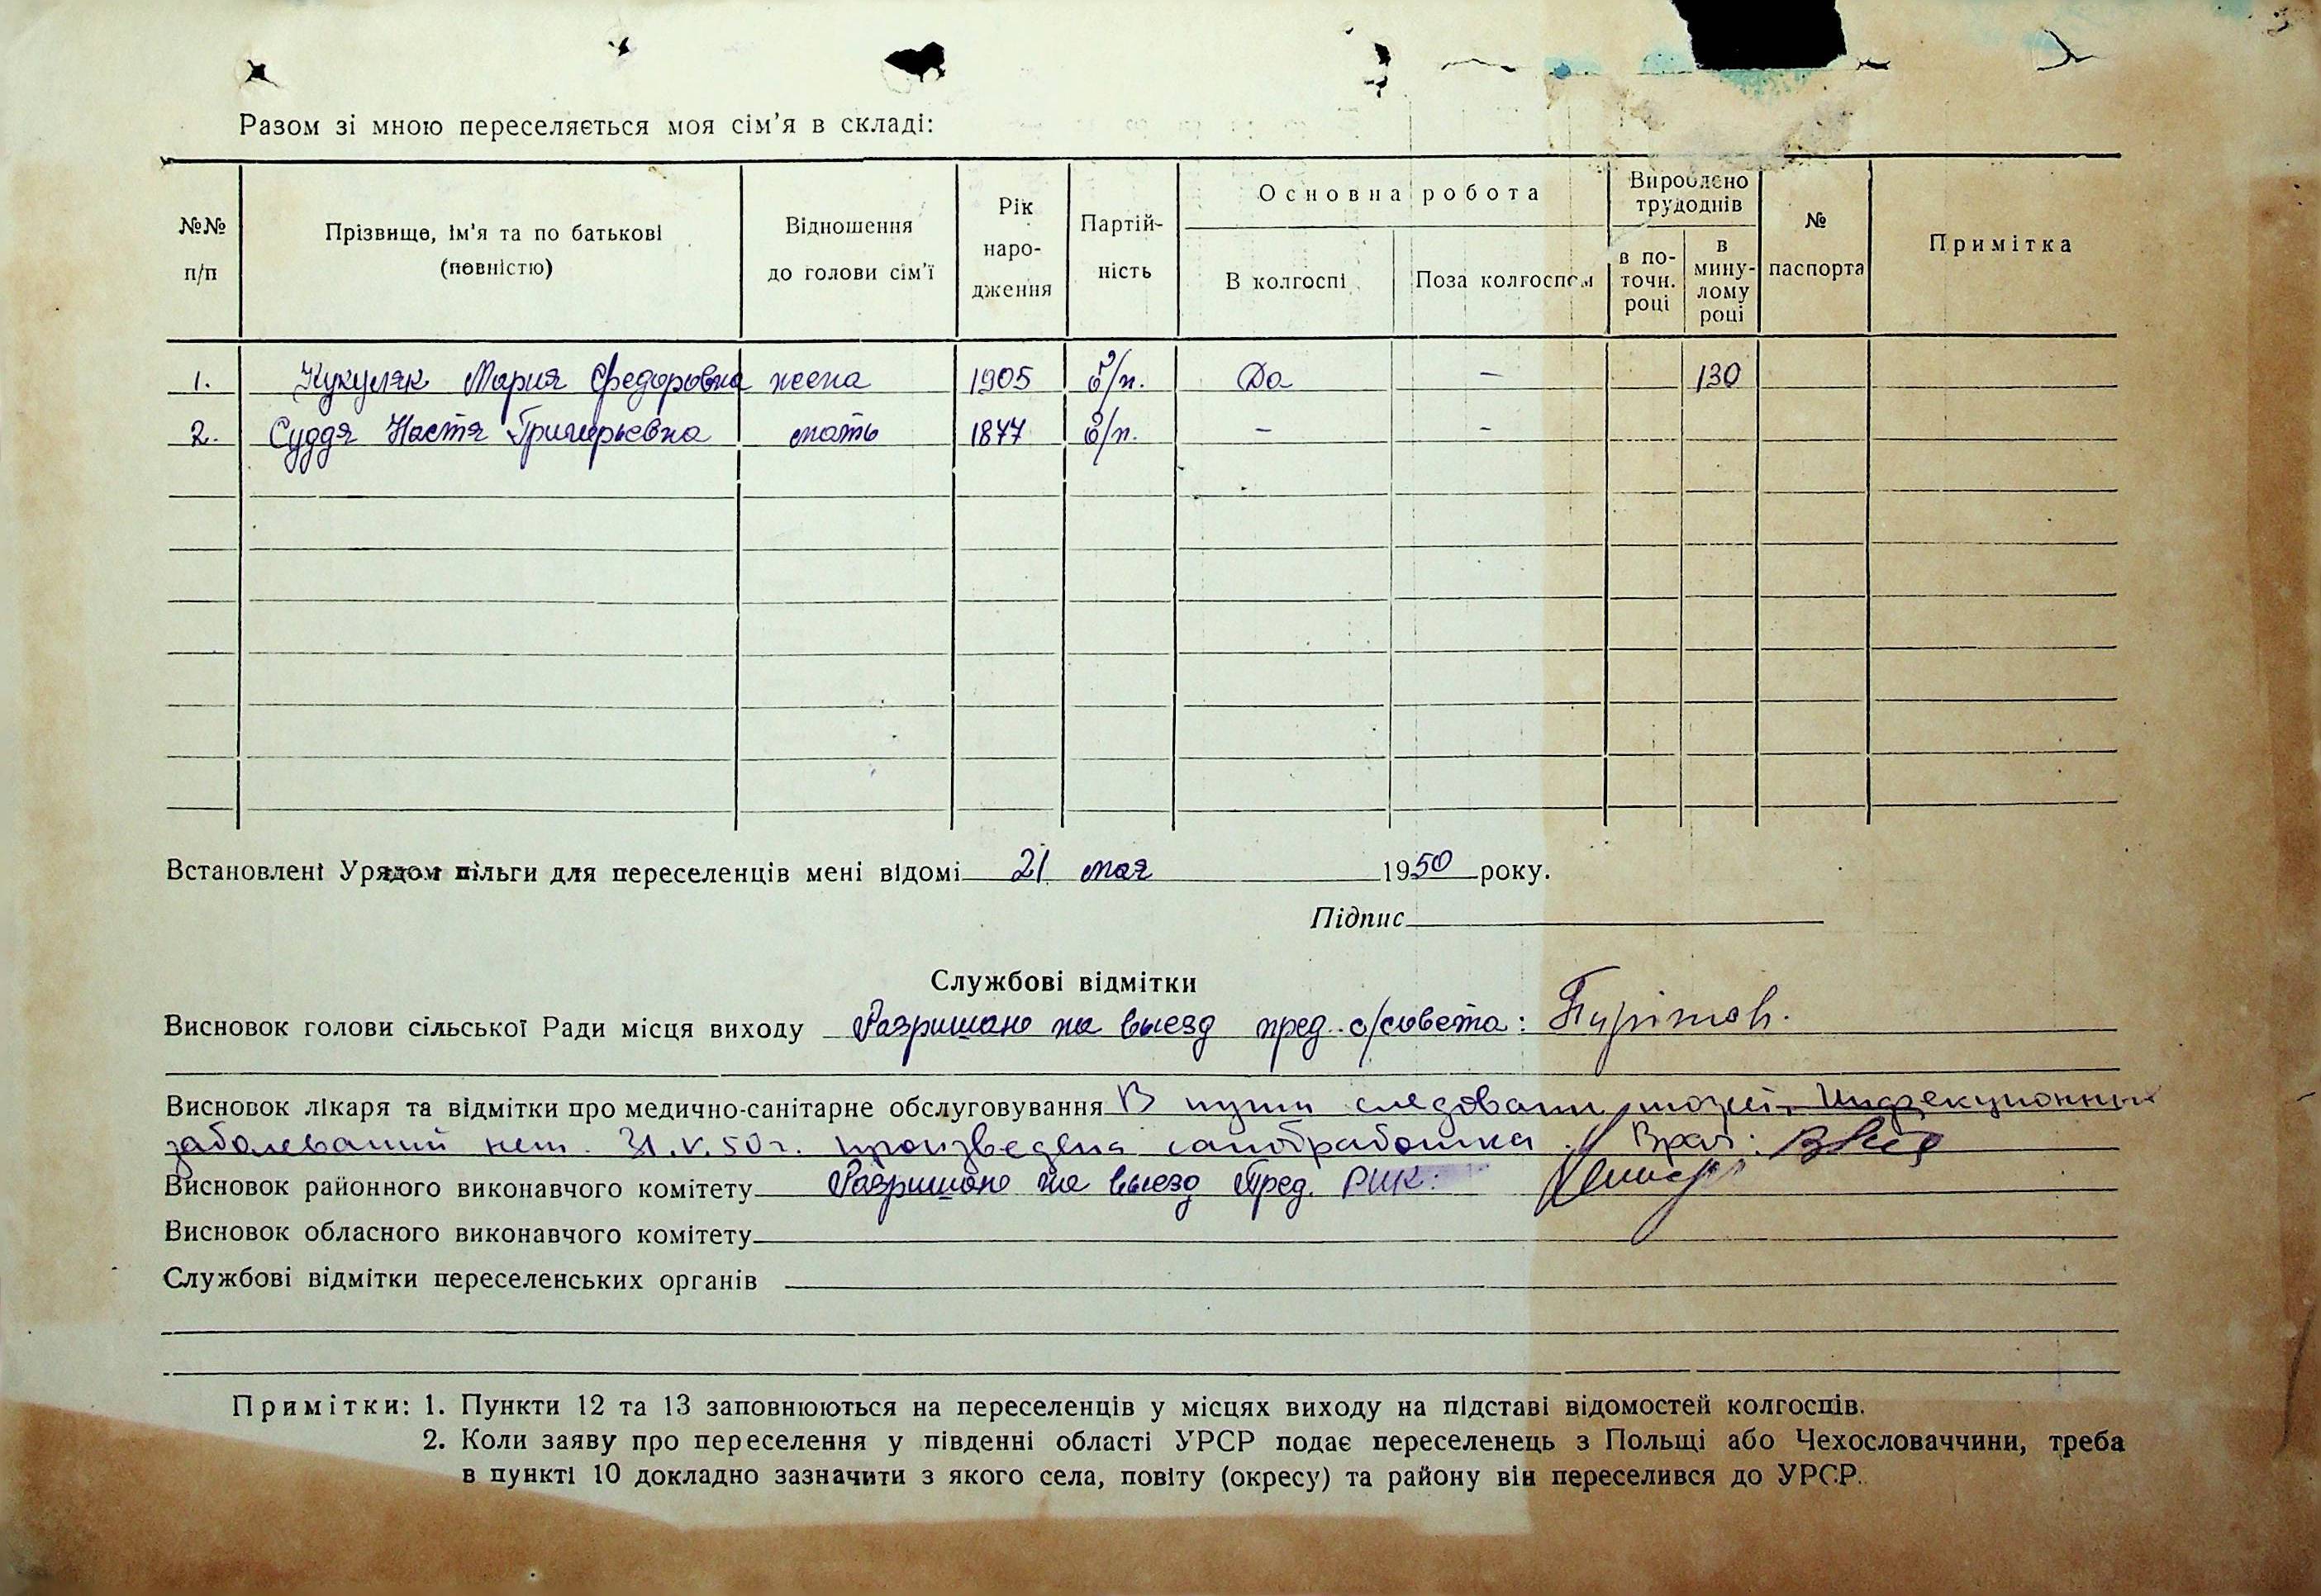 Разом зі мною переселяється моя сім'я в складі:
№№ п/п
Прізвище, ім'я та по батькові (повністю)
Відношення до голови сім'ї
Рік народження
Партійність
Основна робота
В колгоспі
Поза колгоспом
Вироблено трудоднів
в поточн. році
в минулому році
№ паспорта
Примітка
1. Кукуляк Мария Федоровна жена 1905 б/п. Да – 130
2. Суддя Настя Григорьевна мать 1877 б/п. – –
Встановлені Урядом пільги для переселенців мені відомі 21 мая 1950 року.
Підпис
Службові відмітки
Висновок голови сільської Ради місця виходу Разришано на выезд пред. с/совета:
Висновок лікаря та відмітки про медично-санітарне обслуговування В пути следовати может. Инфекционных
заболеваний нет. 31.V.50 г. произведена санобработка. Врач:
Висновок районного виконавчого комітету Разришано на выезд Пред. РИК:
Висновок обласного виконавчого комітету
Службові відмітки переселенських органів
Примітки: 1. Пункти 12 та 13 заповнюються на переселенців у місцях виходу на підставі відомостей колгоспів.
2. Коли заяву про переселення у південні області УРСР подає переселенець з Польщі або Чехословаччини, треба
в пункті 10 докладно зазначити з якого села, повіту (окресу) та району він переселився до УРСР.